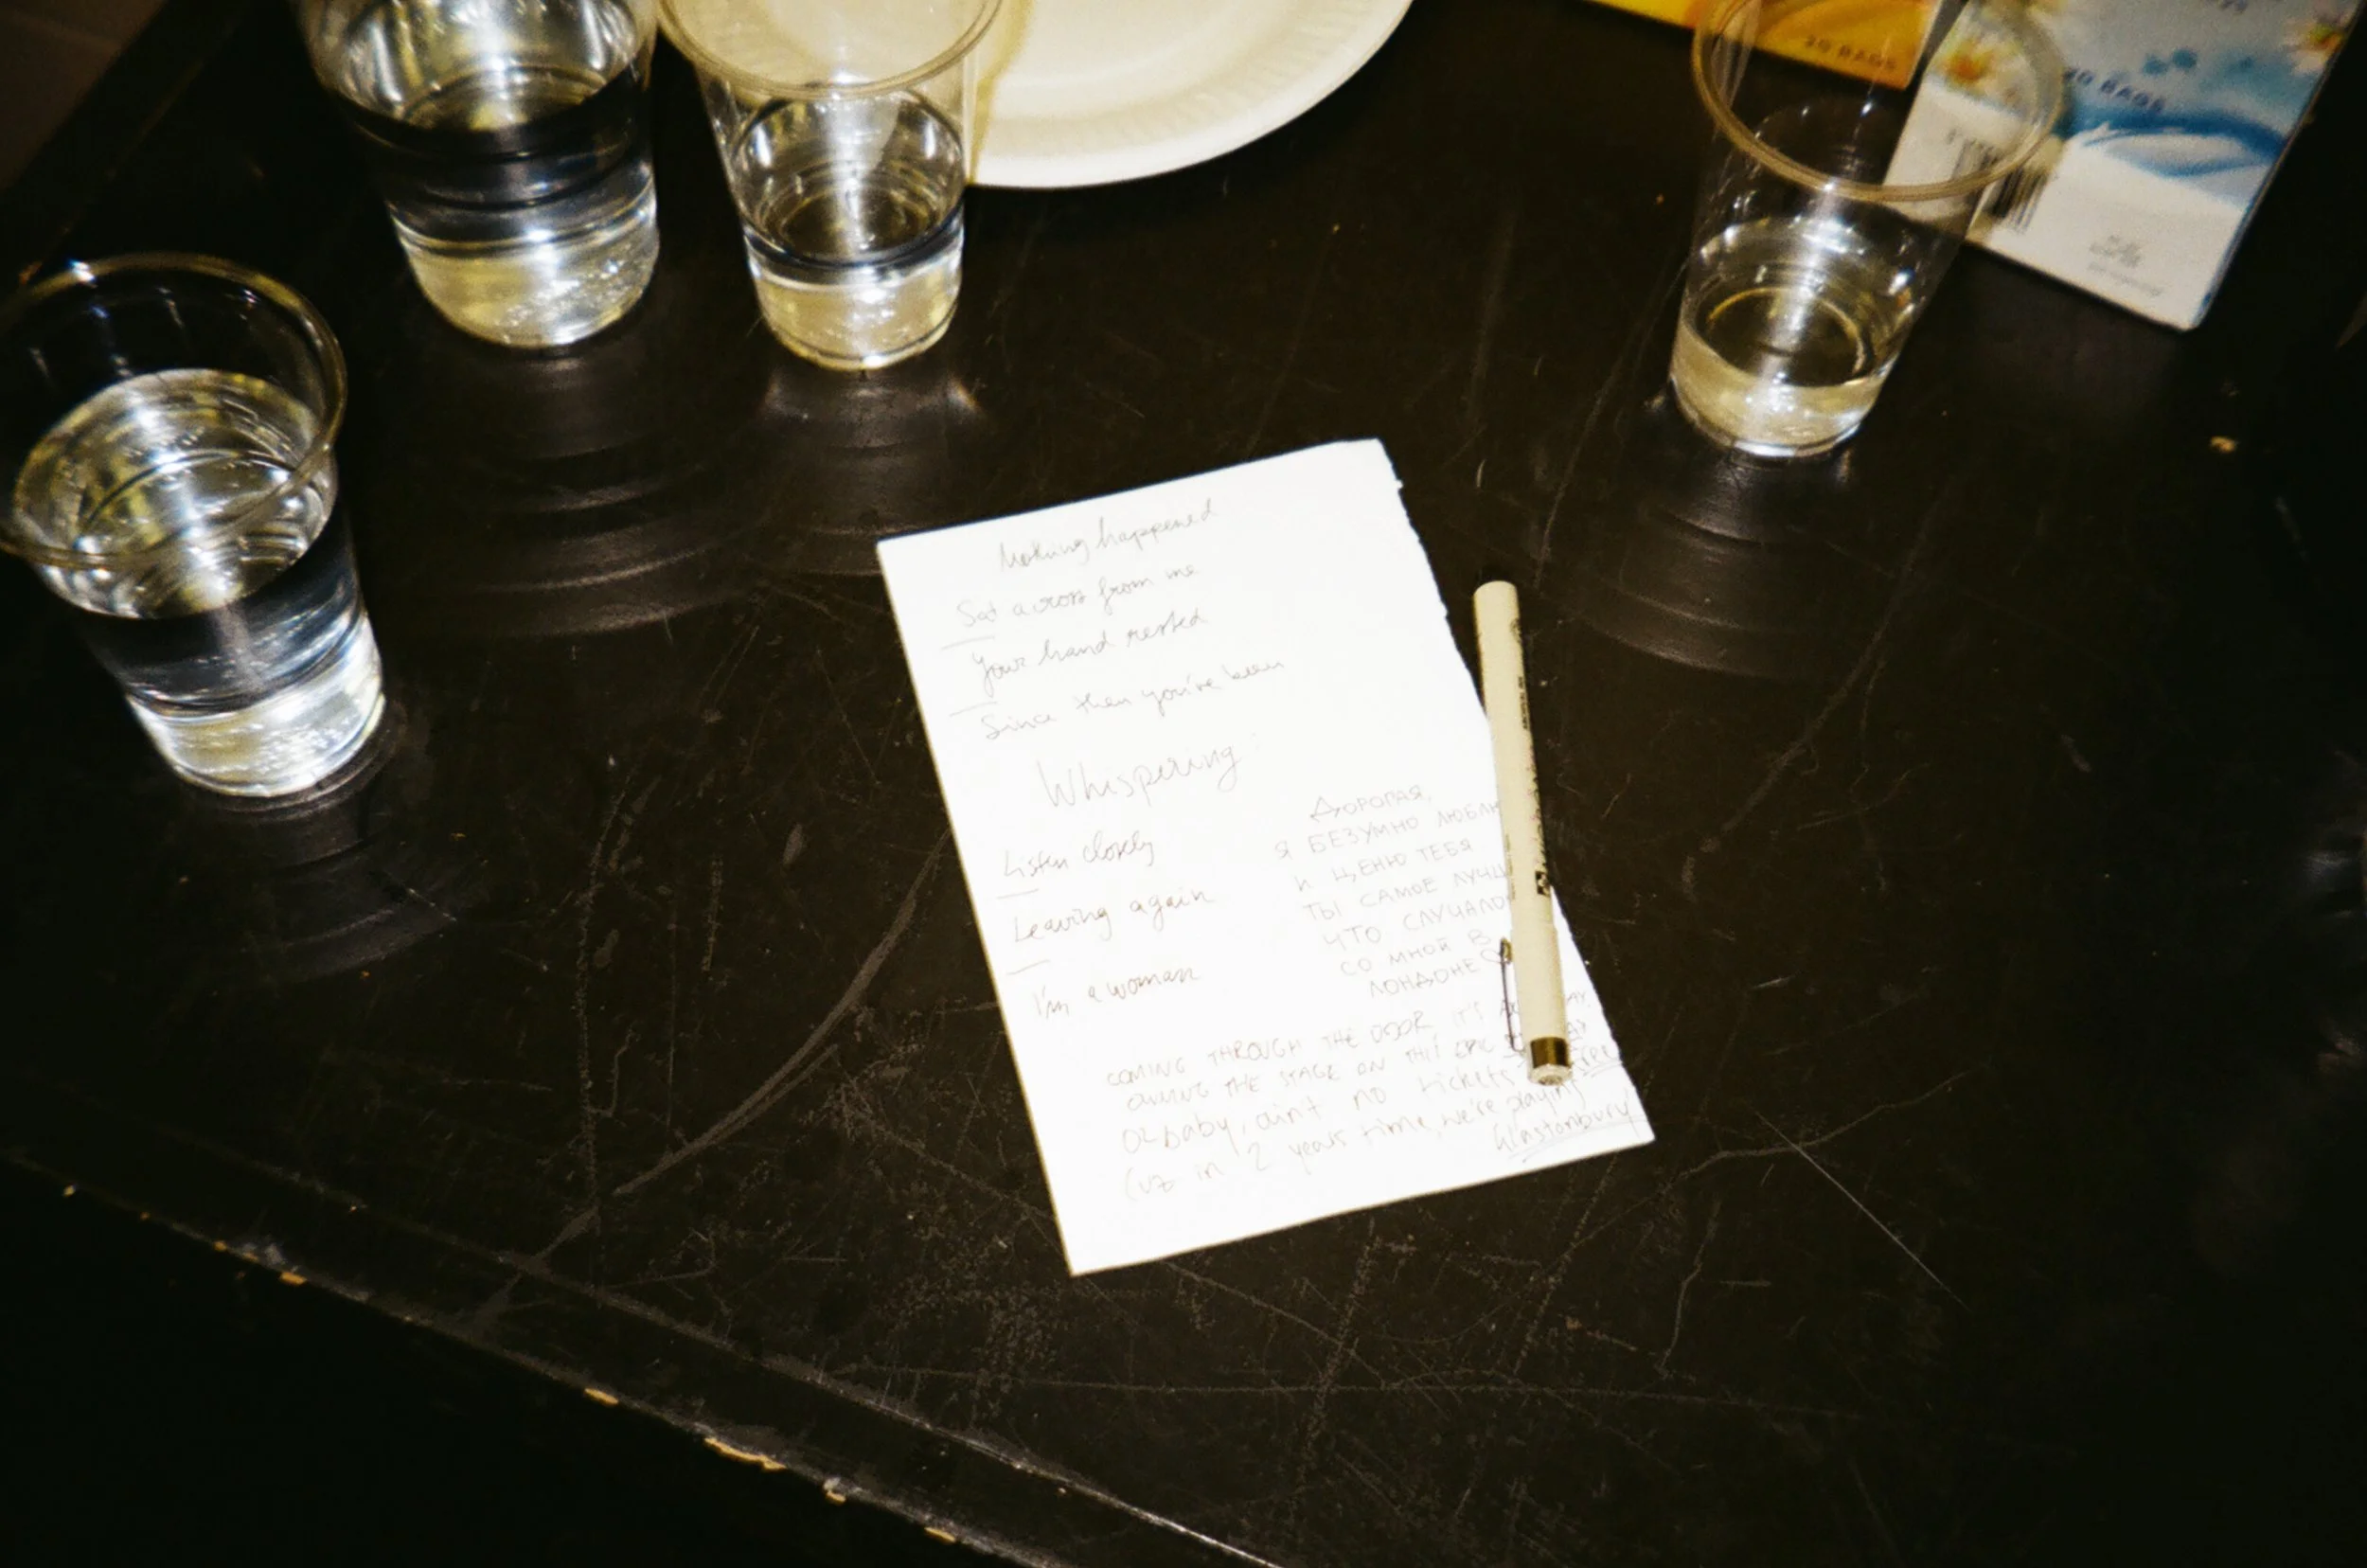 20 BAGS
20 BAGS
happened
Sat across from me
Your hand rested
Since then you've been
Whispering
Listen closely
Leaving again
I'm a woman
ДОРОГАЯ,
Я БЕЗУМНО
И ЦЕНЮ ТЕБЯ
ТЫ САМОЕ
ЧТО
СО МНОЙ В
ЛОНДОНЕ
COMING THROUGH THE DOOR, IT'S
THE STAGE ON THIS EPIC
baby, ain't no tickets
Cuz in 2 years time, we're playing
Glastonbury